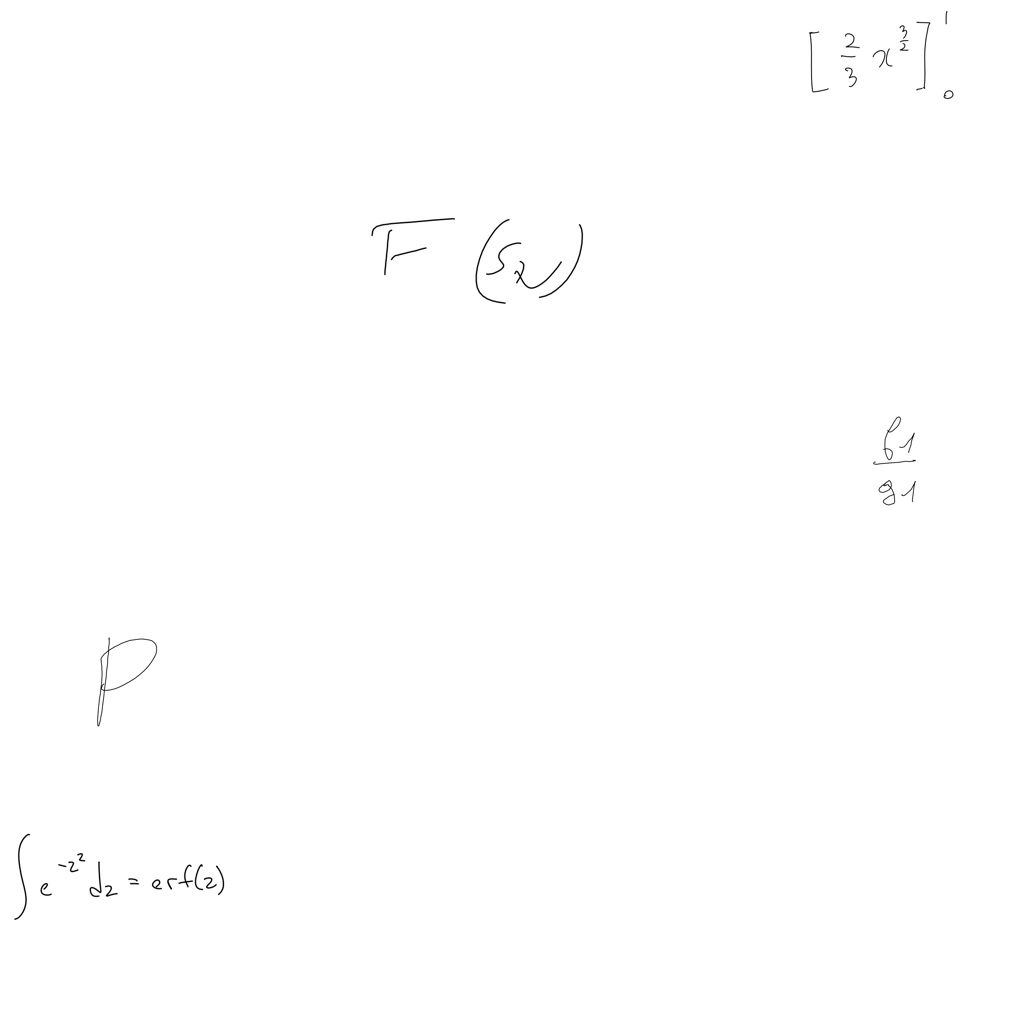 [ 2/3 x^{3/2} ]_0^1
F(5x)
f1/g1
p
∫ e^{-z^2} dz = erf(z)